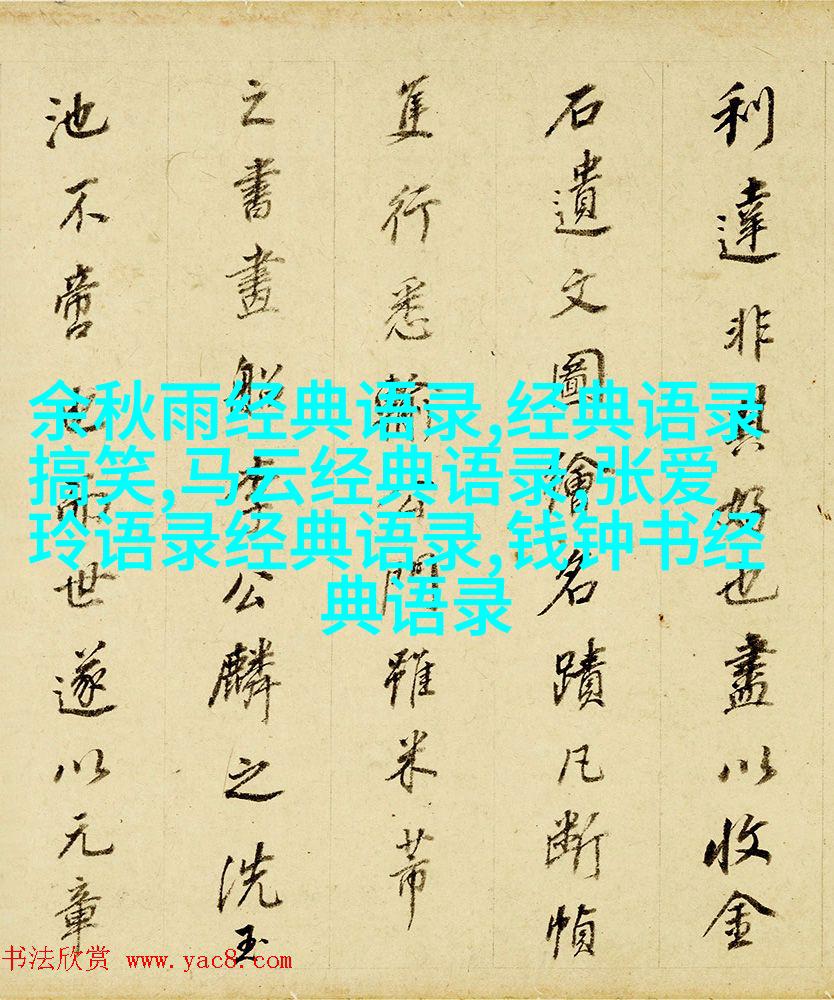 利達非其好也盡以收金
石遺文圖繪名蹟凡斷幀
隻行悉公門雖米芾
之書畫船李公麟之洗玉
池不啻世遂以元章
余秋雨经典语录,经典语录
搞笑,马云经典语录,张爱
玲语录经典语录,钱钟书经
典语录
书法欣赏 www.yac8.com